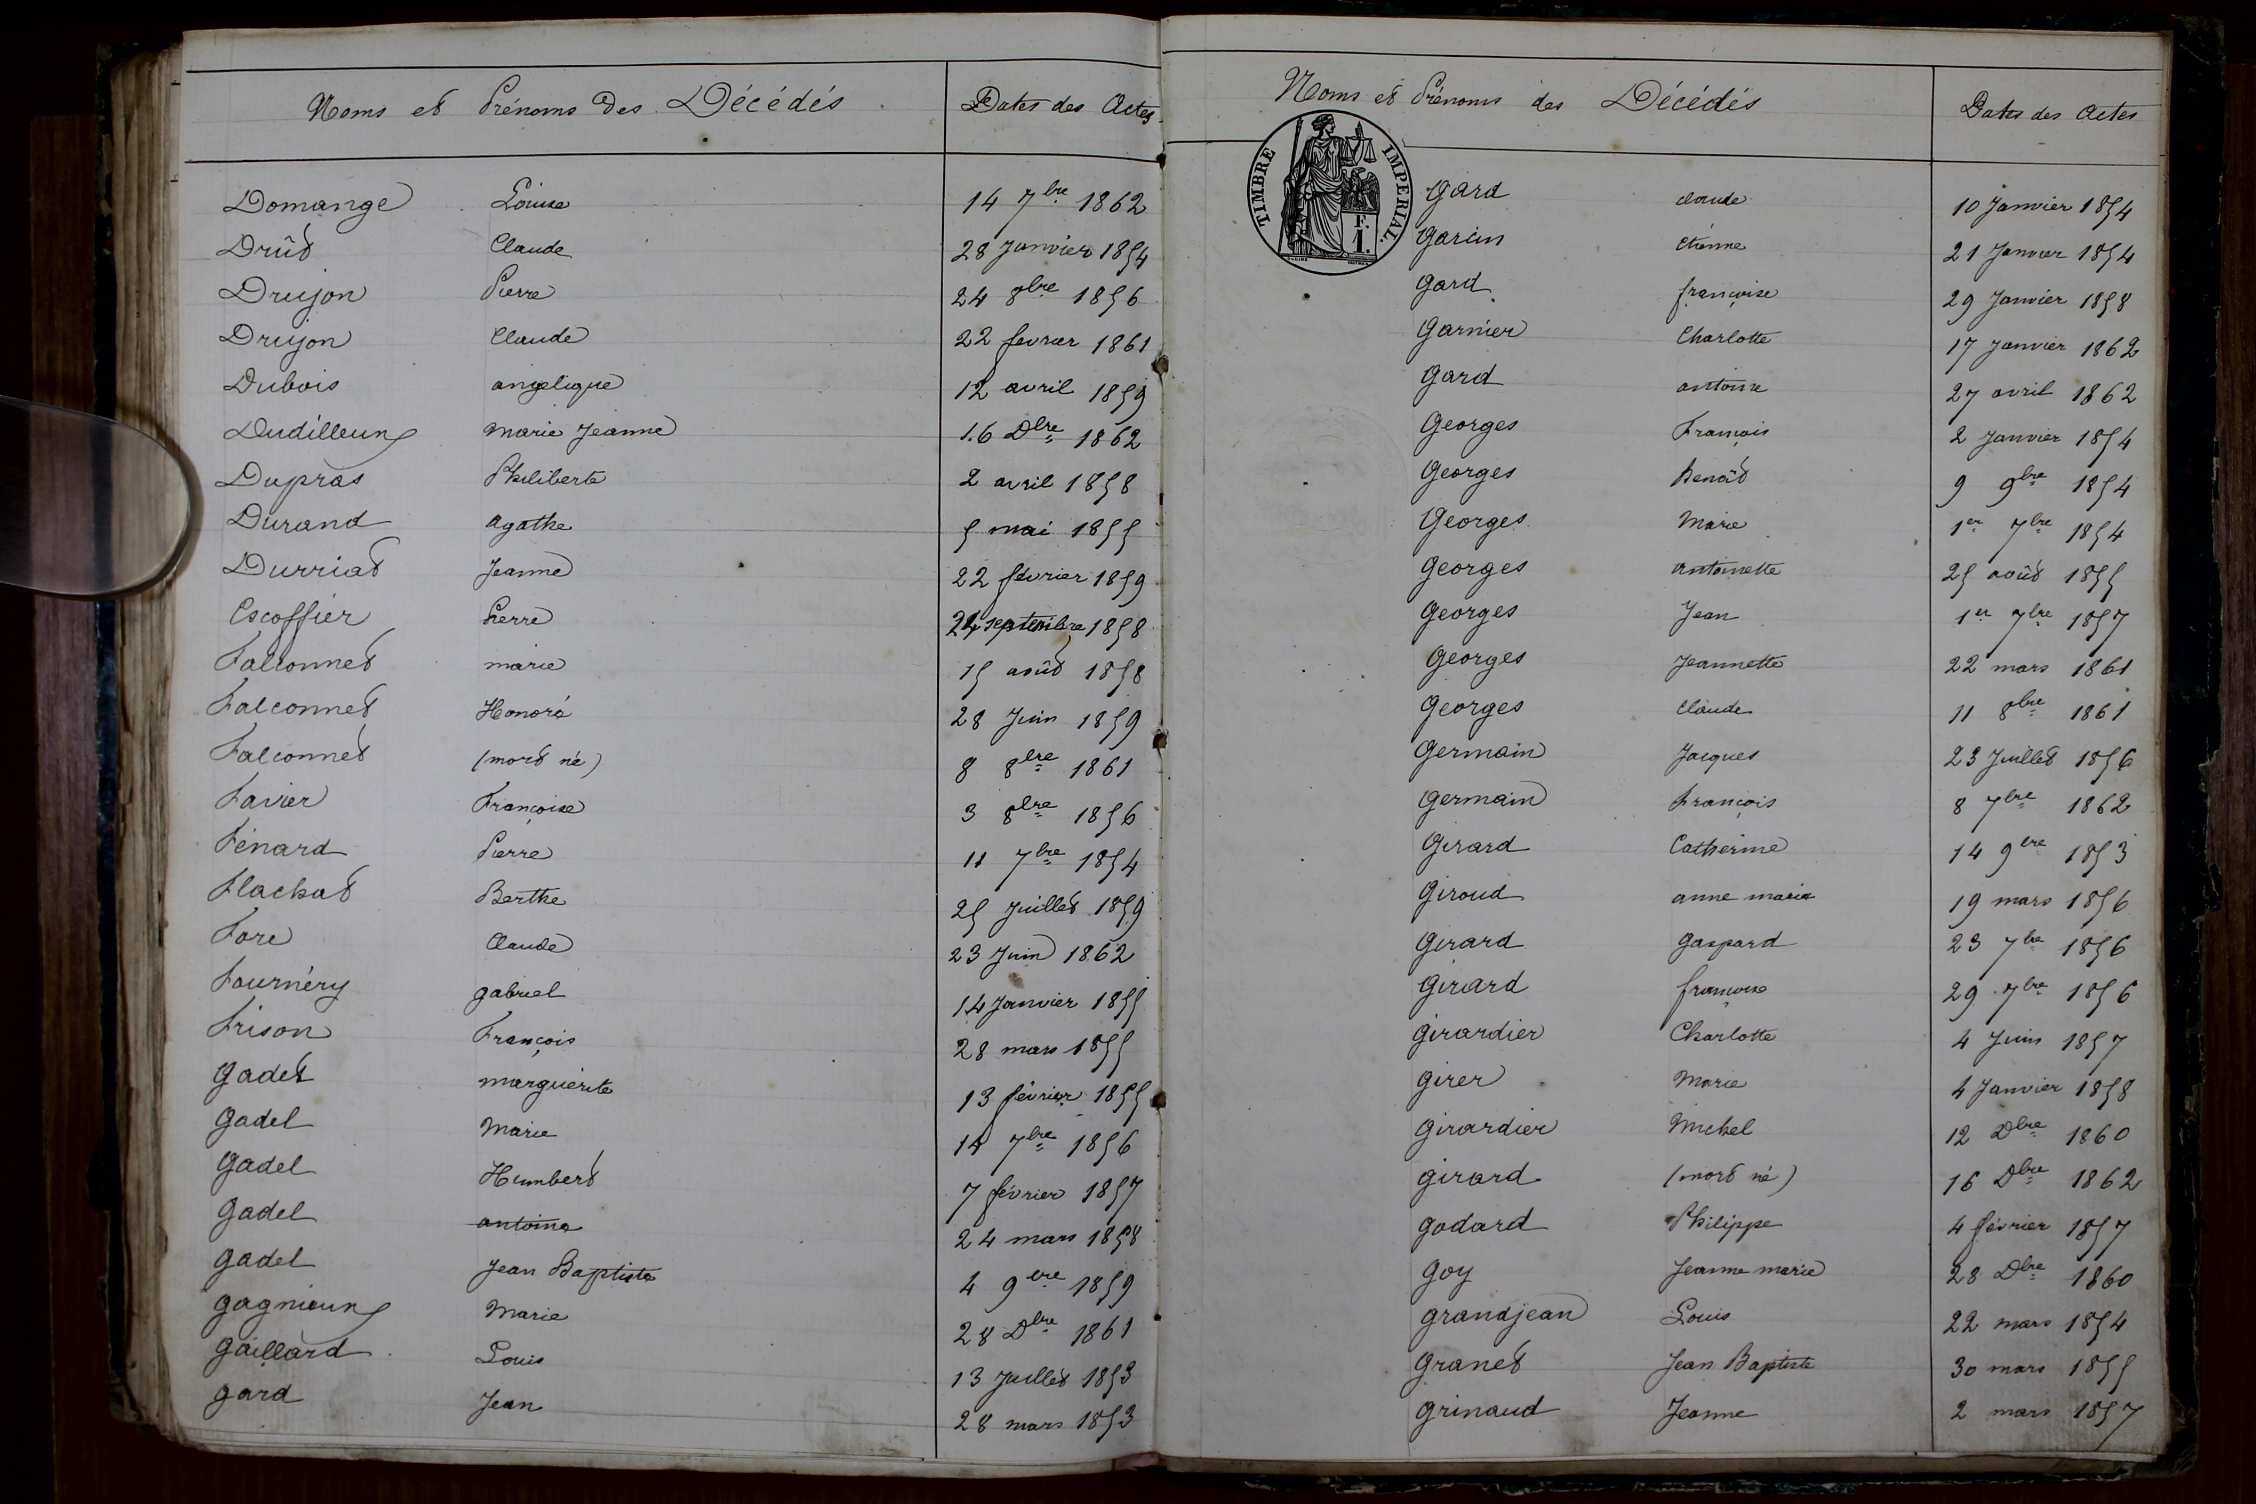 Noms et Prénoms des Décédés Dates des Actes
Domange Louise 14 7bre 1862
Drût Claude 28 Janvier 1854
Drujon Pierre 24 8bre 1856
Drujon Claude 22 fevrier 1861
Dubois angelique 12 avril 1859
Dudilleux Marie Jeanne 16 Dbre 1862
Dupras Philiberte 2 avril 1858
Durand agathe 5 mai 1855
Durriat Jeanne 22 février 1859
Escoffier Pierre 24 septembre 1858
Falconnet marie 15 août 1858
Falconnet Honoré 28 Juin 1859
Falconnet (mort né) 8 8bre 1861
Favier Françoise 3 8bre 1856
Fénard Pierre 11 7bre 1854
Flachat Berthe 25 Juillet 1859
Fore Claude 23 Juin 1862
Fournéry gabriel 14 Janvier 1855
Frison François 28 mars 1855
gadel marguérite 13 février 1855
gadel Marie 14 7bre 1856
gadel Humbert 7 février 1857
gadel antoine 24 mars 1858
gadel Jean Baptiste 4 9bre 1859
gagnieux Marie 28 Dbre 1861
gaillard Louis 13 Juillet 1853
gard Jean 28 mars 1853
Noms et Prénoms des Décédés Dates des Actes
TIMBRE IMPERIAL.
F.
1.
gard claude 10 Janvier 1854
garcin etienne 21 Janvier 1854
gard françoise 29 Janvier 1858
garnier Charlotte 17 Janvier 1862
gard antoine 27 avril 1862
georges François 2 Janvier 1854
georges benoît 9 9bre 1854
georges Marie 1er 7bre 1854
georges antoinette 25 août 1855
georges Jean 1er 7bre 1857
georges Jeannette 22 mars 1861
georges claude 11 8bre 1861
germain Jacques 23 Juillet 1856
germain François 8 7bre 1862
girard Catherine 14 9bre 1853
giroud anne marie 19 mars 1856
girard gaspard 23 7bre 1856
girard françoise 29 7bre 1856
girardier Charlotte 4 Juin 1857
girer Marie 4 Janvier 1858
girardier Michel 12 Dbre 1860
girard (mort né) 16 Dbre 1862
godard Philippe 4 février 1857
goy Jeanne marie 28 Dbre 1860
grandjean Louis 22 mars 1854
granet Jean Baptiste 30 mars 1855
grinaud Jeanne 2 mars 1857